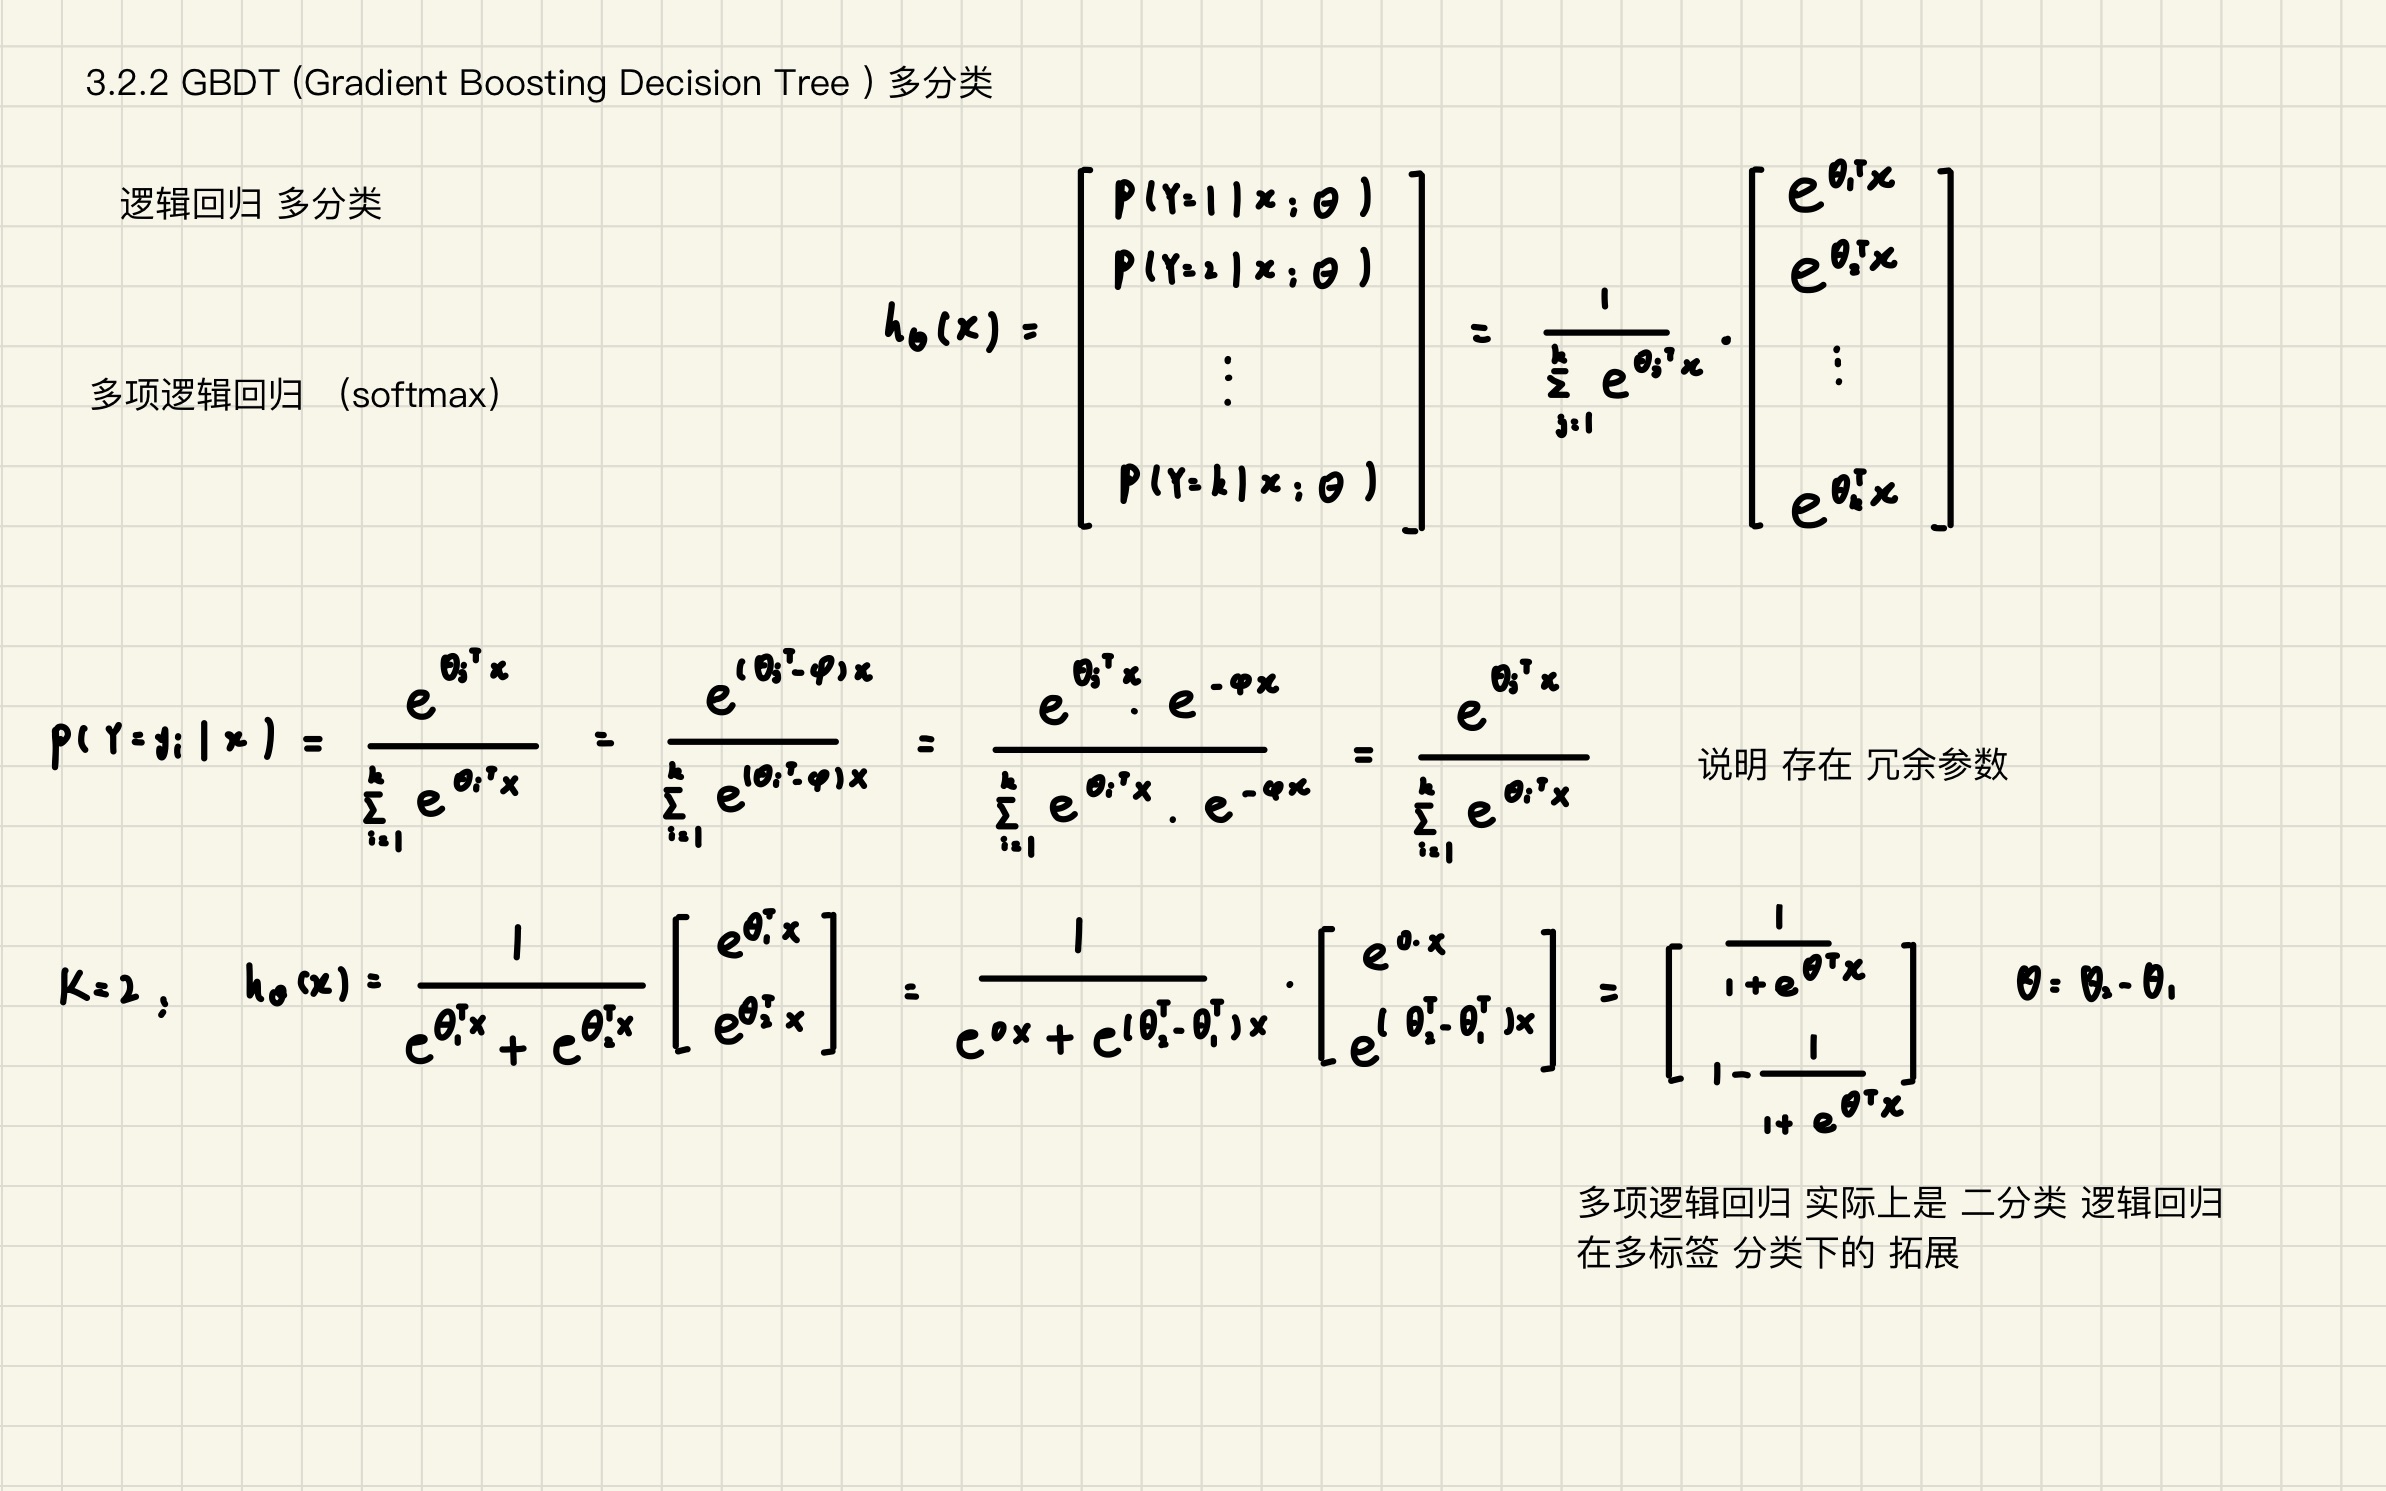 3.2.2 GBDT (Gradient Boosting Decision Tree ) 多分类
逻辑回归 多分类
多项逻辑回归 （softmax）
h_θ(x) = [ P(Y=1|x;θ) P(Y=2|x;θ) ⋮ P(Y=k|x;θ) ] = 1 / ∑_{j=1}^{k} e^{θ_j^T x} · [ e^{θ_1^T x} e^{θ_2^T x} ⋮ e^{θ_k^T x} ]
P(Y=y_i|x) = e^{θ_j^T x} / ∑_{i=1}^{k} e^{θ_i^T x} = e^{(θ_j^T-φ)x} / ∑_{i=1}^{k} e^{(θ_i^T-φ)x} = e^{θ_j^T x} · e^{-φx} / ∑_{i=1}^{k} e^{θ_i^T x} · e^{-φx} = e^{θ_j^T x} / ∑_{i=1}^{k} e^{θ_i^T x} 说明 存在 冗余参数
K=2; h_θ(x) = 1 / (e^{θ_1^T x} + e^{θ_2^T x}) [ e^{θ_1^T x} e^{θ_2^T x} ] = 1 / (e^{0x} + e^{(θ_2^T-θ_1^T)x}) · [ e^{0·x} e^{(θ_2^T-θ_1^T)x} ] = [ 1 / (1+e^{θ^T x}) 1 - 1 / (1+e^{θ^T x}) ] θ=θ_2-θ_1
多项逻辑回归 实际上是 二分类 逻辑回归
在多标签 分类下的 拓展